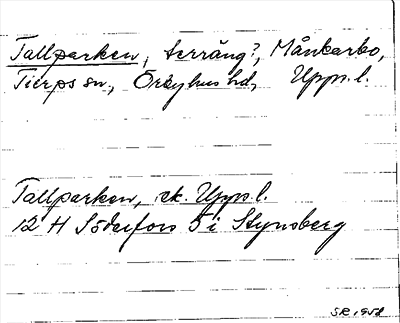 Tallparken, terräng?, Månkarbo,
Tierps sn., Örbyhus hd, Upps. l.
Tallparken, ek. Upps l.
12 H Söderfors 5 i Stynsberg
SR 1958